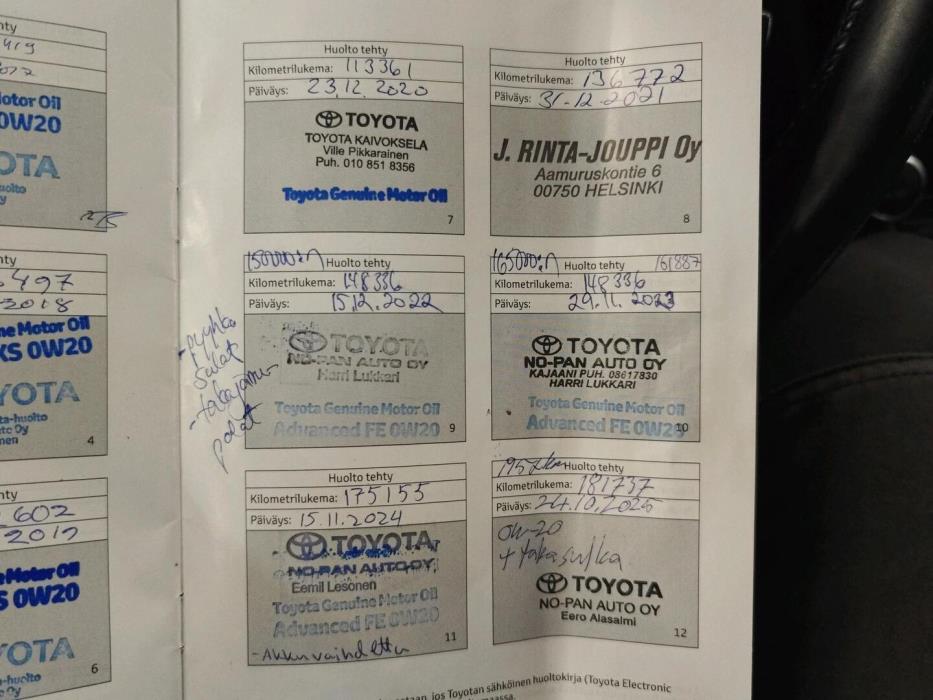 hty
419
otor Oil
0W20
OTA
uolto
y
hty
497
2018
ne Motor Oil
KS 0W20
YOTA
ta-huolto
to Oy
nen
4
hty
602
ne Motor Oil
S 0W20
YOTA
-huolto
Oy
6
Huolto tehty
Kilometrilukema: 113361
Päiväys: 23.12.2020
TOYOTA
TOYOTA KAIVOKSELA
Ville Pikkarainen
Puh. 010 851 8356
Toyota Genuine Motor Oil
7
Huolto tehty
Kilometrilukema: 136772
Päiväys: 31.12.2021
J. RINTA-JOUPPI Oy
Aamuruskontie 6
00750 HELSINKI
8
150000:n Huolto tehty
Kilometrilukema: 148336
Päiväys: 15.12.2022
TOYOTA
NO-PAN AUTO OY
Harri Lukkari
Toyota Genuine Motor Oil
Advanced FE 0W20
9
-pyyhkijä
sulat
-takajarru-
palat
165000:n Huolto tehty 161887
Kilometrilukema: 148336
Päiväys: 29.11.2023
TOYOTA
NO-PAN AUTO OY
KAJAANI PUH. 08617830
HARRI LUKKARI
Toyota Genuine Motor Oil
Advanced FE 0W20
10
Huolto tehty
Kilometrilukema: 175155
Päiväys: 15.11.2024
TOYOTA
NO-PAN AUTO OY
Eemil Lesonen
Toyota Genuine Motor Oil
Advanced FE 0W20
-Akku vaihdettu
11
195tkm Huolto tehty
Kilometrilukema: 181737
Päiväys: 24.10.2025
0W-20
+ takasulka
TOYOTA
NO-PAN AUTO OY
Eero Alasalmi
12
jos Toyotan sähköinen huoltokirja (Toyota Electronic